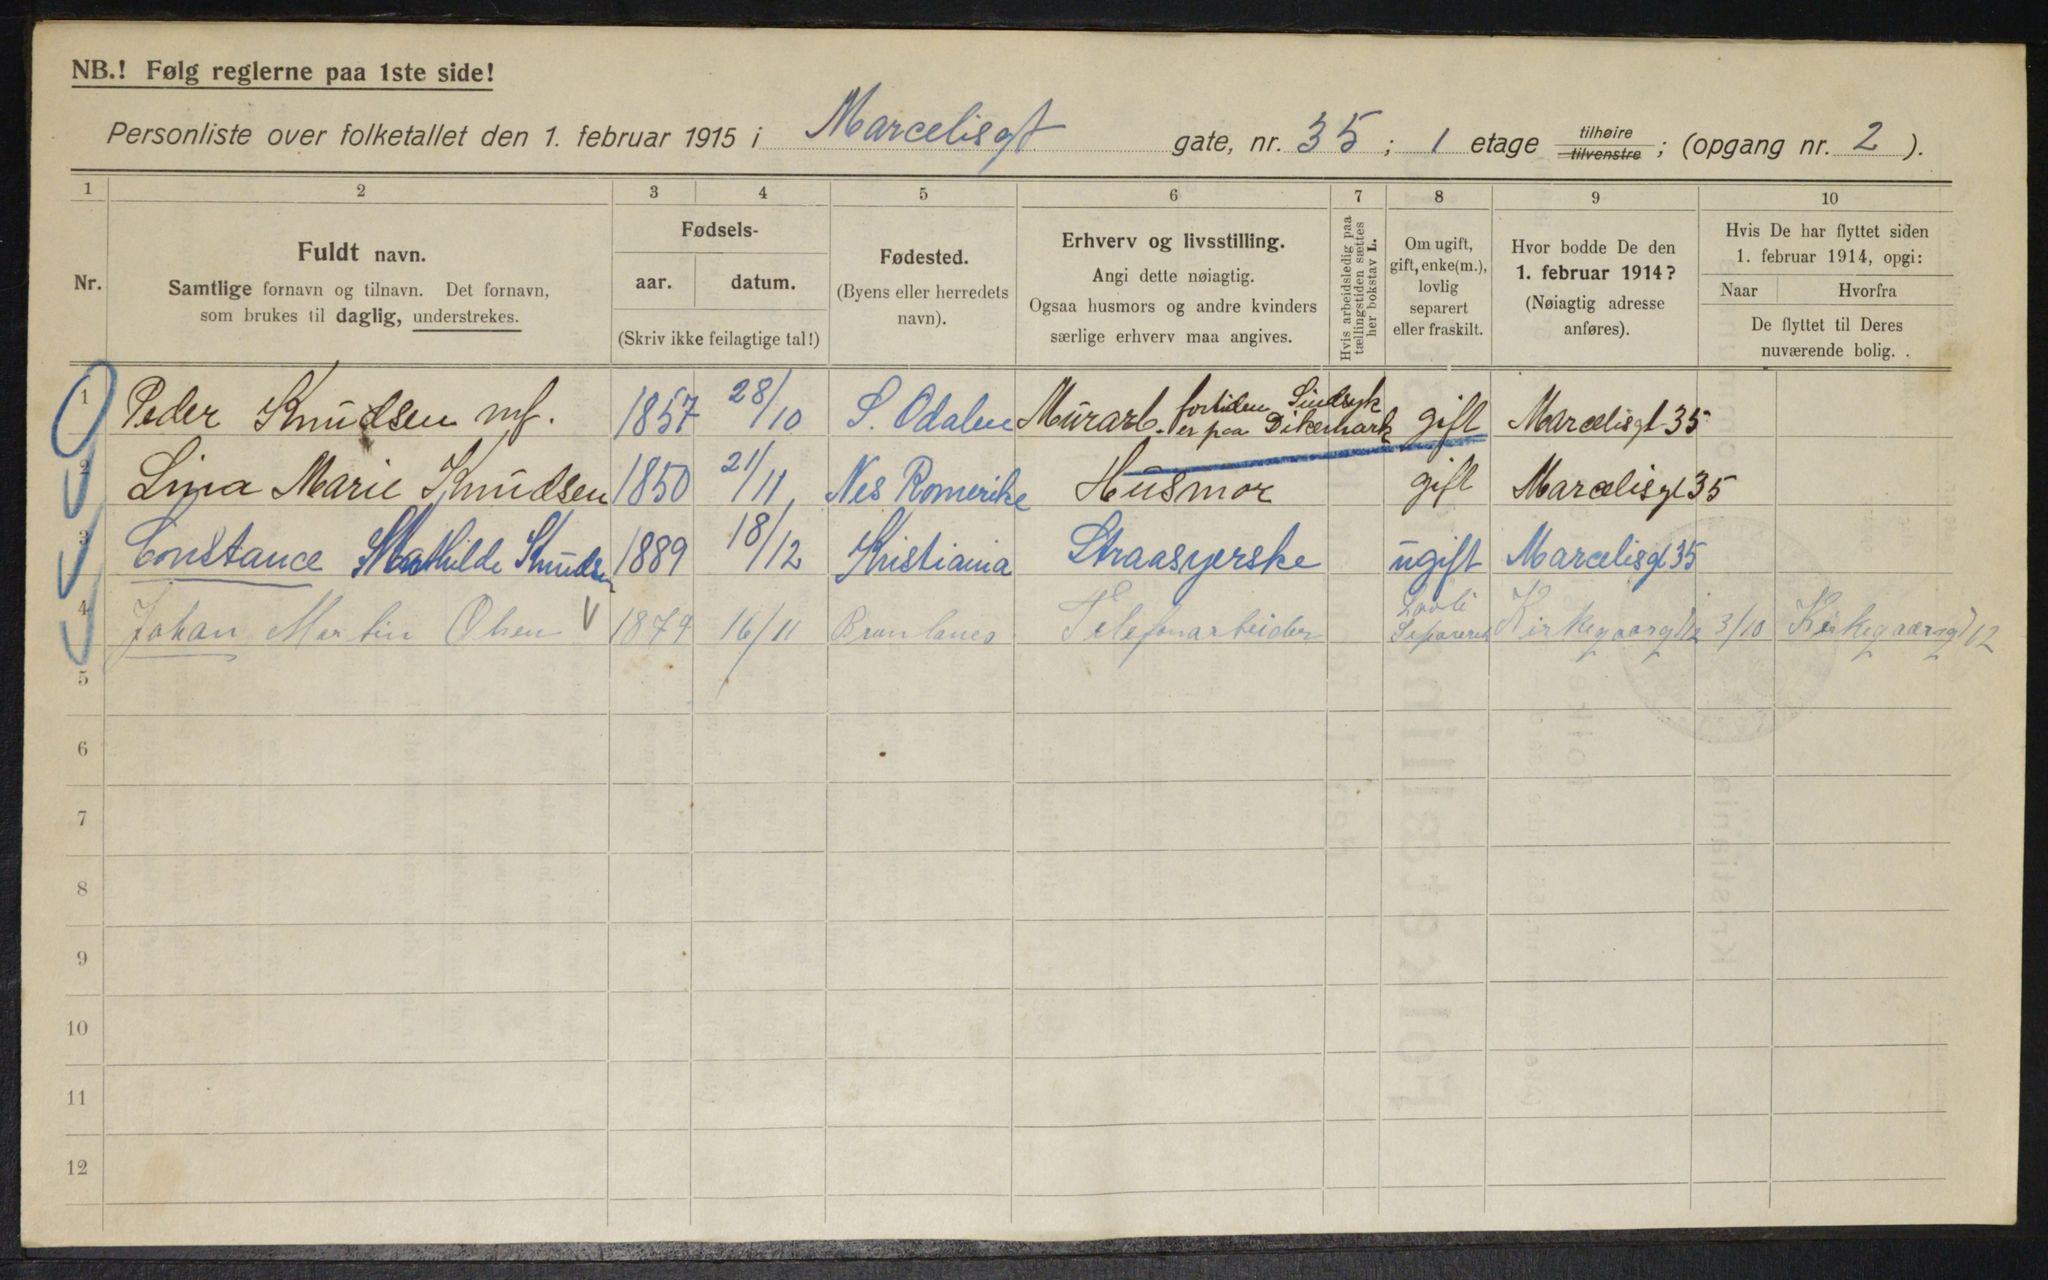 NB.! Følg reglerne paa 1ste side!
Personliste over folketallet den 1. februar 1915 i Marcelisgt gate, nr. 35 ; 1 etage tilhøire tilvenstre ; (opgang nr. 2 ).
1 2 3 4 5 6 7 8 9 10
Nr.
Fuldt navn.
Samtlige fornavn og tilnavn. Det fornavn,
som brukes til daglig, understrekes.
Fødsels-
aar. datum.
(Skriv ikke feilagtige tal!)
Fødested.
(Byens eller herredets
navn).
Erhverv og livsstilling.
Angi dette nøiagtig.
Ogsaa husmors og andre kvinders
særlige erhverv maa angives.
Hvis arbeidsledig paa
tællingstiden sættes
her bokstav L.
Om ugift,
gift, enke(m.),
lovlig
separert
eller fraskilt.
Hvor bodde De den
1. februar 1914?
(Nøiagtig adresse
anføres).
Hvis De har flyttet siden
1. februar 1914, opgi:
Naar Hvorfra
De flyttet til Deres
nuværende bolig.
1 Peder Knudsen mf. 1857 28/10 S. Odalen Murarb. fortiden Sindsyk er paa Dikemark gift Marcelisgt 35
2 Lina Marie Knudsen 1850 21/11 Nes Romerike Husmor gift Marcelisgt 35
3 Constance Mathilde Knudsen 1889 18/12 Kristiania Straasyerske ugift Marcelisgt 35
4 Johan Martin Olsen 1879 16/11 Brunlanes Telefonarbeider Lovli Separeret Kirkegaarsgt 12 3/10 Kirkegaarsgt 12
5
6
7
8
9
10
11
12